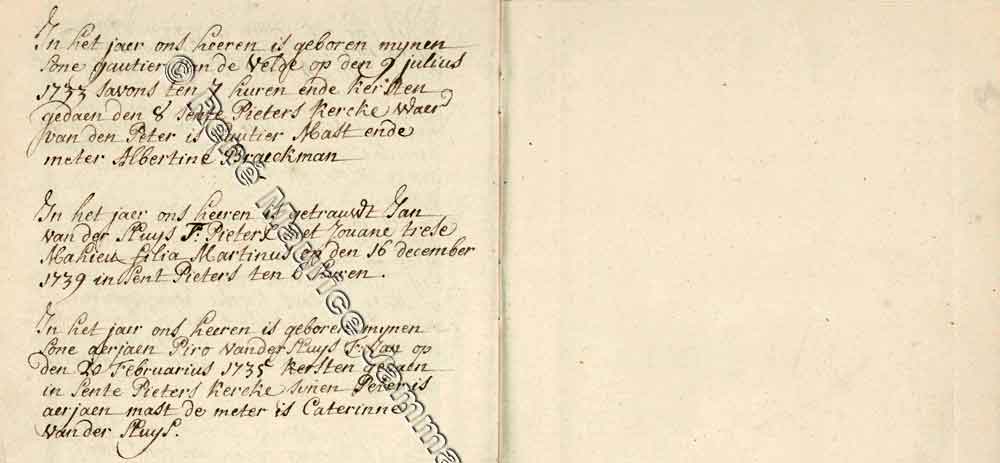 In het jaer ons heeren is geboren mynen
sone gautier van de Velde op den 9 julius
1733 savons ten 7 huren ende kersten
gedaen den 8 sente Pieters Kercke waer
van den Peter is gautier Mast ende
meter Albertine Braeckman
In het jaer ons heeren is getrauwdt Jan
van der sluys F: Pieters met Jouane trese
Mahieu filia Martinus op den 16 december
1739 in sent Pieters ten 6 huren.
In het jaer ons heeren is geboren mynen
sone aerjaen Piro vander sluys F: Jan op
den 20 Februarius 1735 kersten gedaen
in sente Pieters kercke synen Peter is
aerjaen mast de meter is Caterinne
vander sluys.